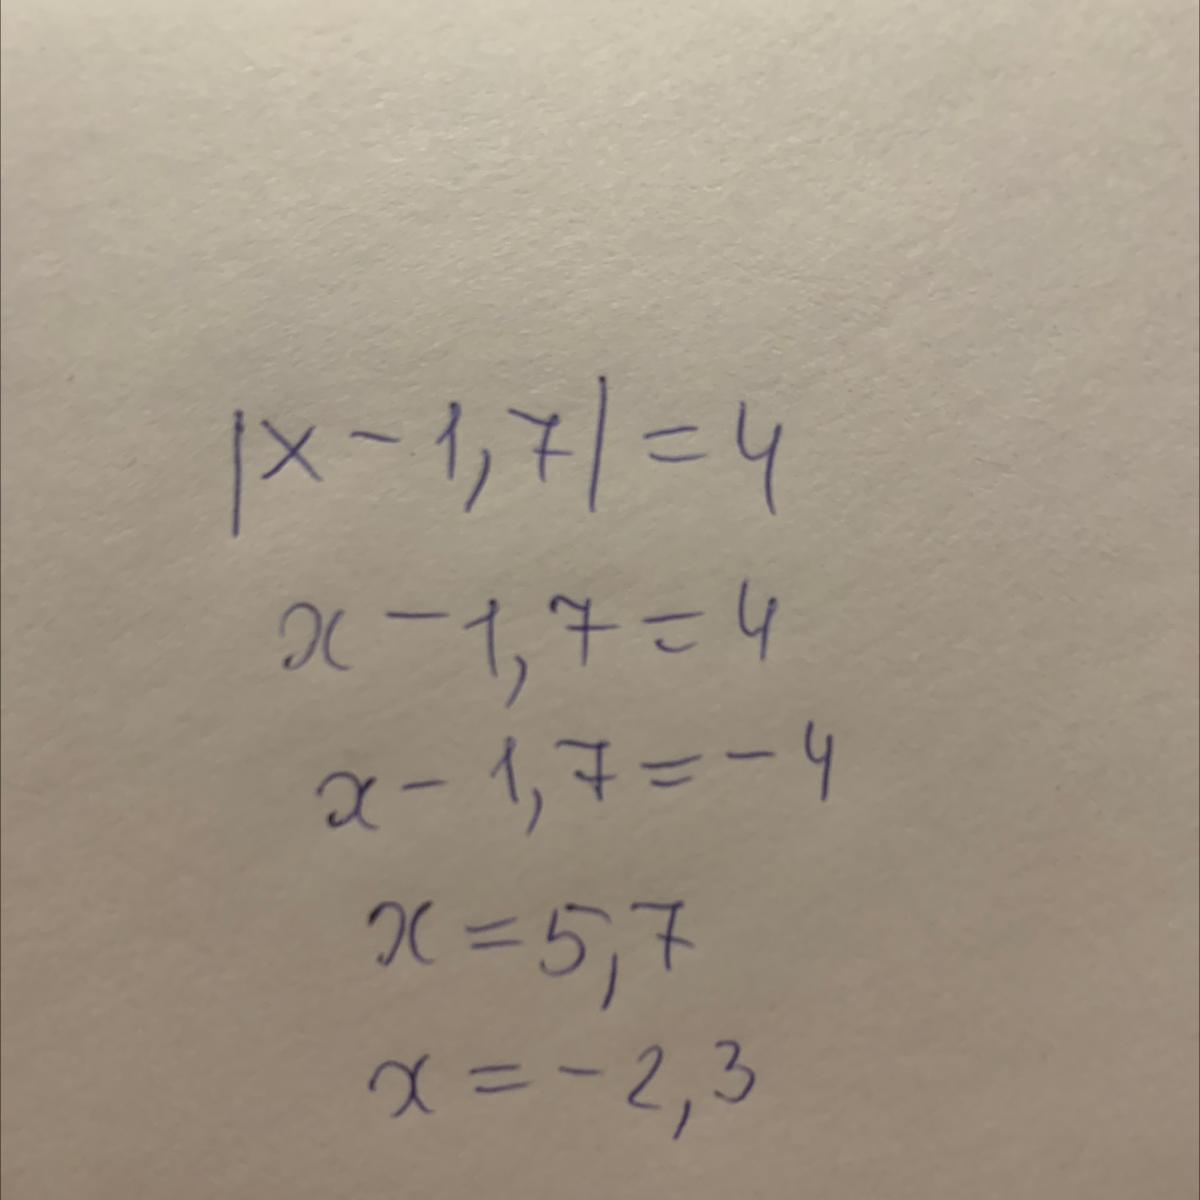 |x - 1,7| = 4
x - 1,7 = 4
x - 1,7 = -4
x = 5,7
x = -2,3